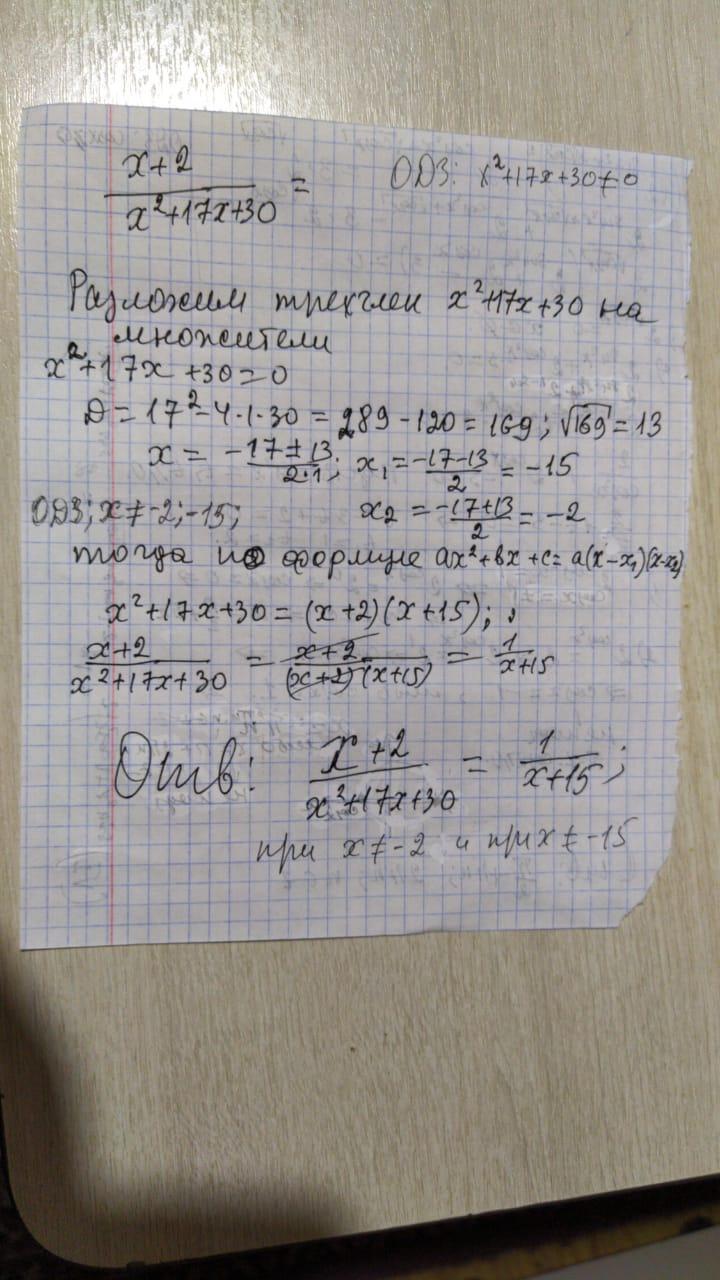 x+2/x²+17x+30 = ОДЗ: x²+17x+30≠0
Разложим трехчлен x²+17x+30 на
множители
x²+17x+30=0
D=17²-4·1·30=289-120=169; √169=13
x=-17±13/2·1; x₁=-17-13/2=-15
ОДЗ; x≠-2;-15; x₂=-17+13/2=-2
тогда по формуле ax²+bx+c=a(x-x₁)(x-x₂)
x²+17x+30=(x+2)(x+15);
x+2/x²+17x+30 = x+2/(x+2)(x+15) = 1/x+15
Отв: x+2/x²+17x+30 = 1/x+15;
при x≠-2 и при x≠-15